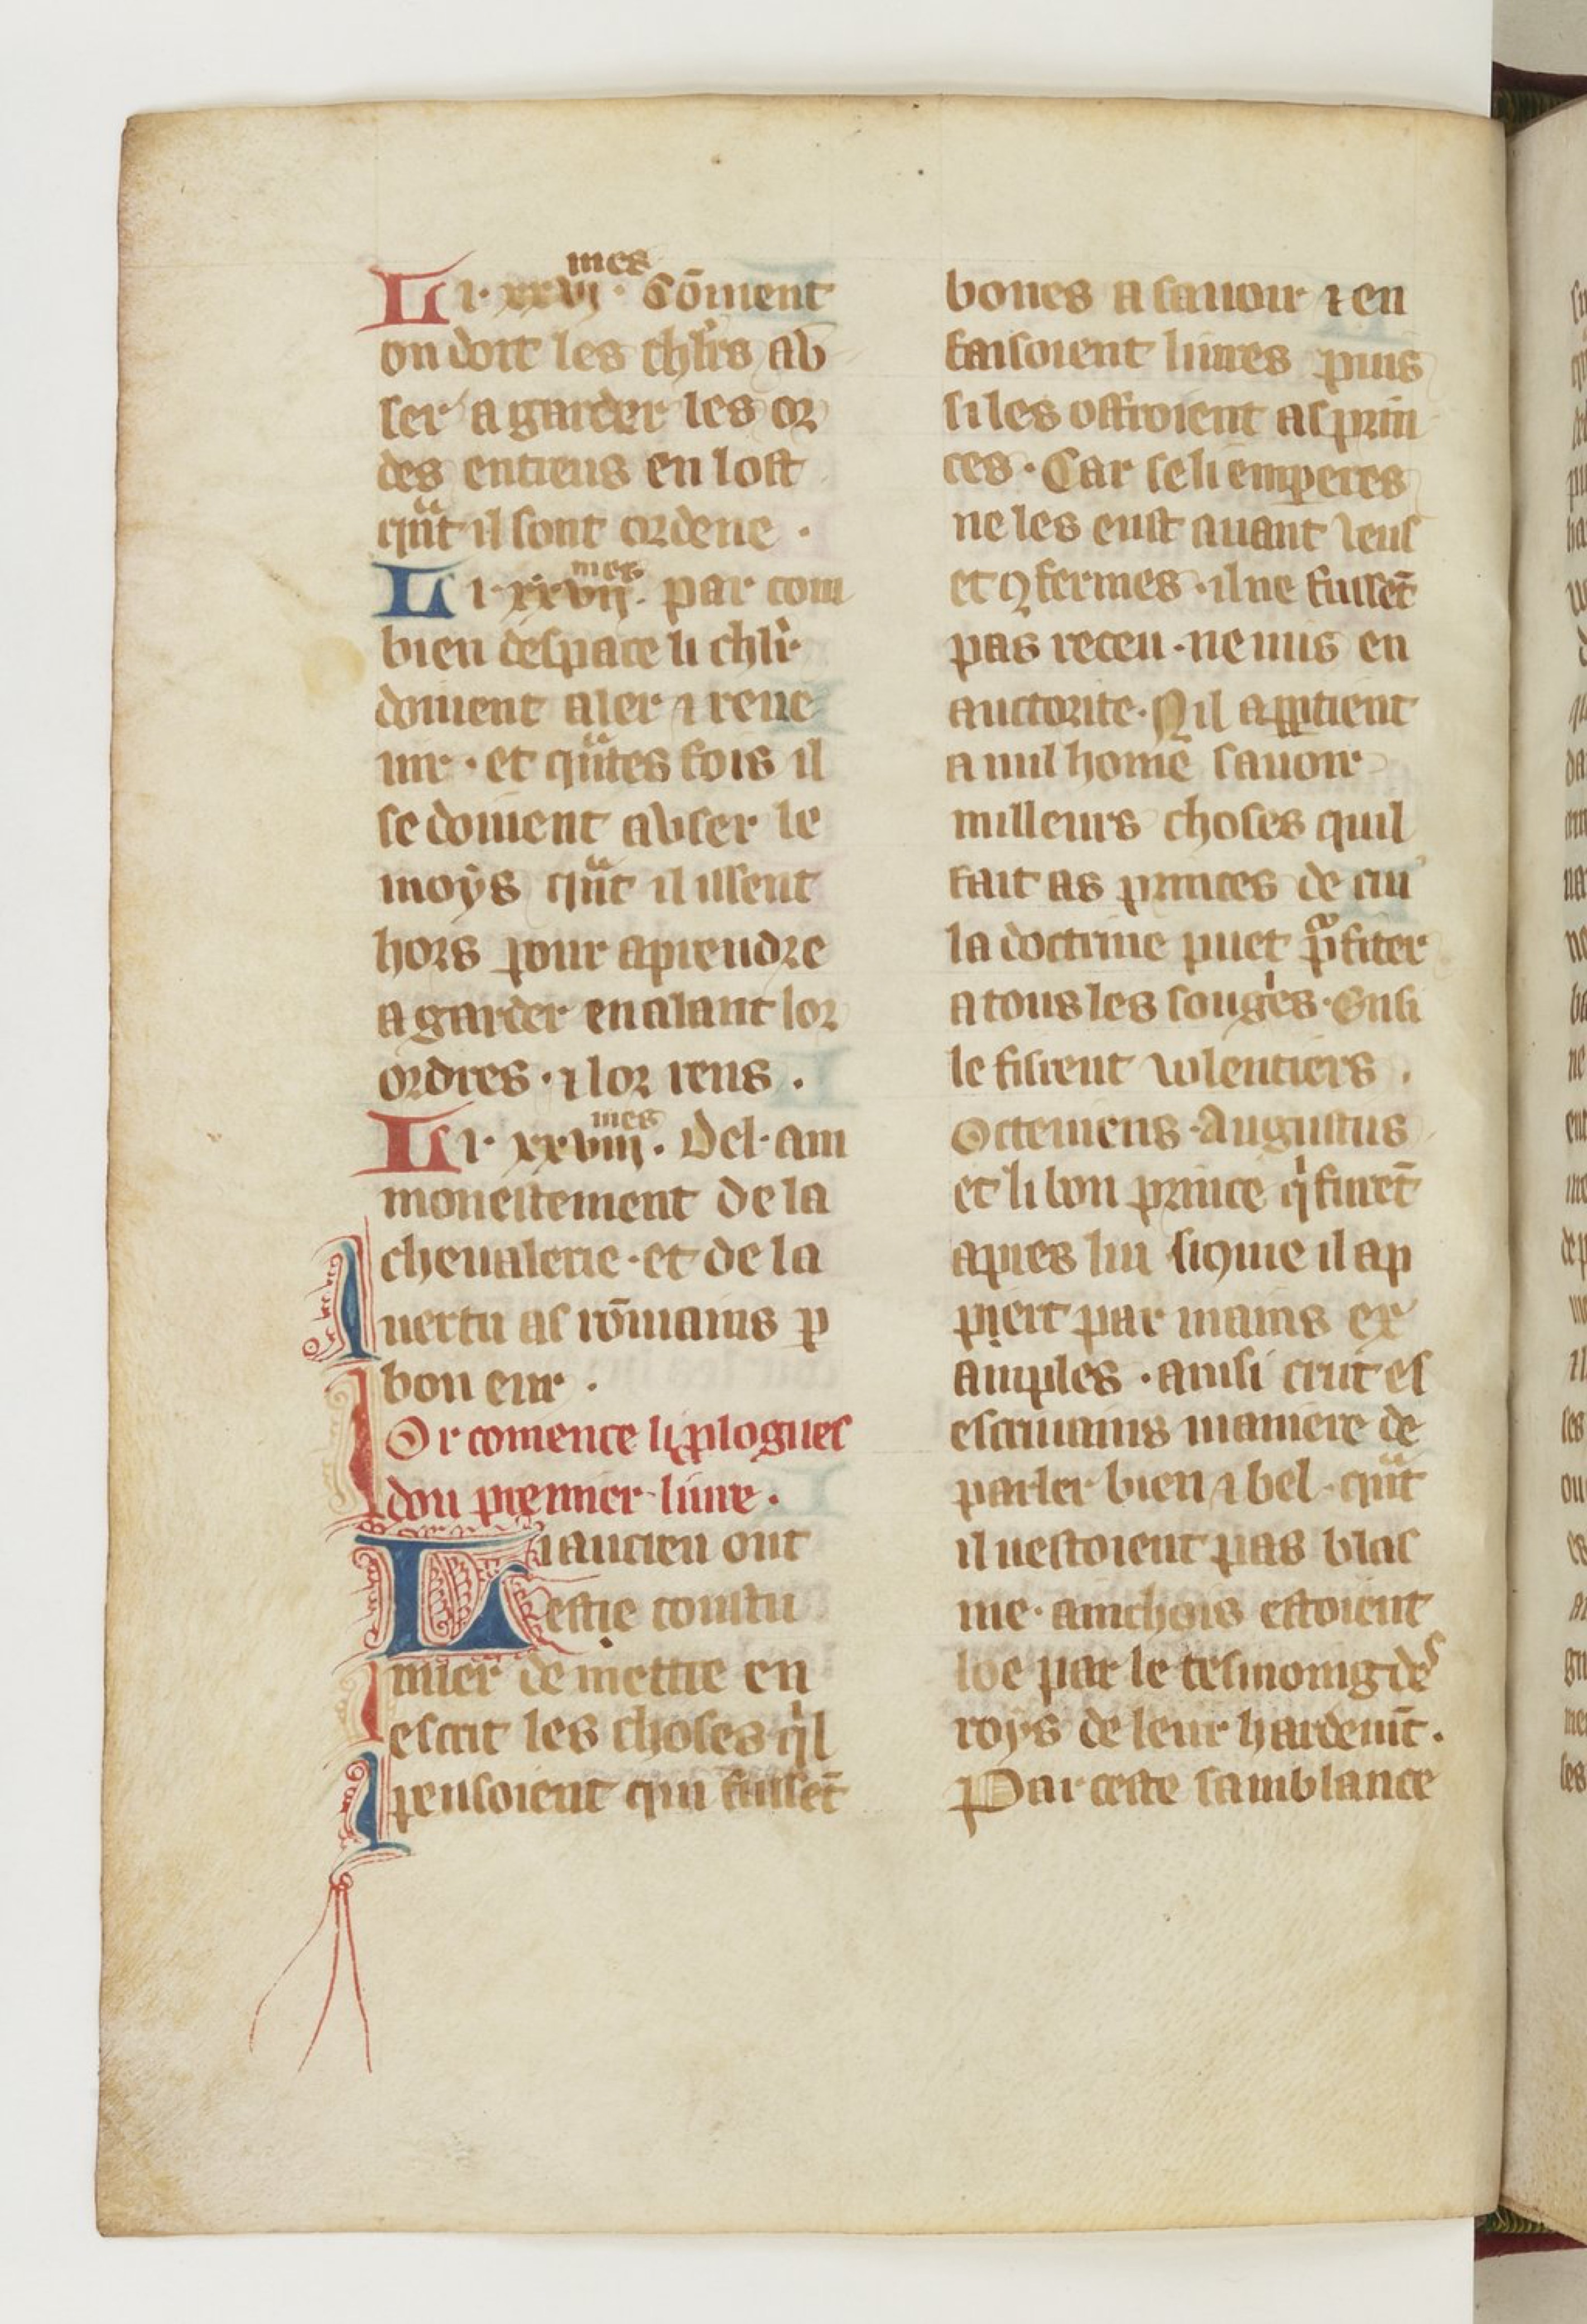 Li · xxvi · mes Cōment
on doit les chlrs ab
ser a garder les or
des entreus en lost
qͣnt il sont ordene ·
Li · xxvii · mes par com
bien despace li chlr
doiuent aler ⁊ reue
nir · et qͣntes fois il
se doiuent abser le
moys qͣnt il issent
hors pour aprendre
a garder en alant lor
ordres · ⁊ lor rens ·
Li · xxviii · mes Del · am
monestement de la
cheualerie · et de la
uertu as rōmains ꝑ
bon eur ·
Or comence li ꝓlogues
dou premier liure ·
Li ancien ont
estre coustu
mier de mettre en
escrit les choses qͥl
pensoient qui fussēt
bones a sauoir ⁊ en
faisoient liures puis
si les offroient as prin
ces · Car se li emꝑeres
ne les eust auant leus
et ꝯfermes · il ne fussēt
pas receu · ne mis en
auctorite · N il aꝑꝑtient
a nul home sauoir
milleurs choses quil
fait as princes de cui
la doctrine puet pͣfiter
a tous les souges · Ensi
le fisrent volentiers ·
Octeuiens · Augustus
et li bon prince qͥ furēt
apres lui si ꝯme il ap
piert par mains ex
amples · ainsi crut es
escriuains maniere de
parler bien ⁊ bel · qͣnt
il nestoient pas blas
me · ainchois estoient
loe par le tesmoing des
roys de leur hardemt̄ ·
Par ceste samblance